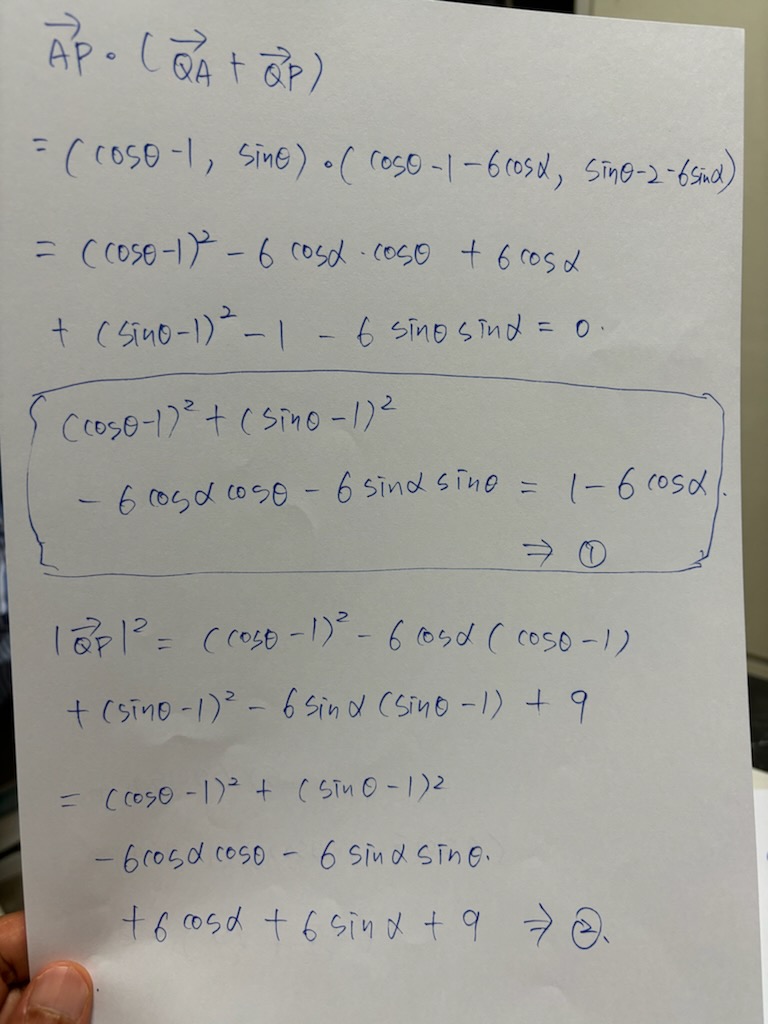 →AP • (→QA + →QP)
= (cosθ-1, sinθ) • (cosθ-1-6cosα, sinθ-2-6sinα)
= (cosθ-1)² - 6 cosα · cosθ + 6 cosα
+ (sinθ-1)² - 1 - 6 sinθ sinα = 0.
(cosθ-1)² + (sinθ-1)²
- 6 cosα cosθ - 6 sinα sinθ = 1 - 6 cosα.
⇒ ①
|→QP|² = (cosθ-1)² - 6 cosα (cosθ-1)
+ (sinθ-1)² - 6 sinα (sinθ-1) + 9
= (cosθ-1)² + (sinθ-1)²
- 6cosα cosθ - 6 sinα sinθ.
+ 6 cosα + 6 sinα + 9 ⇒ ②.